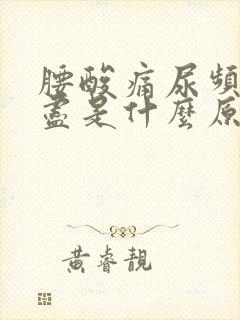 腰酸痛尿頻
盡是什麼原
黃睿靚